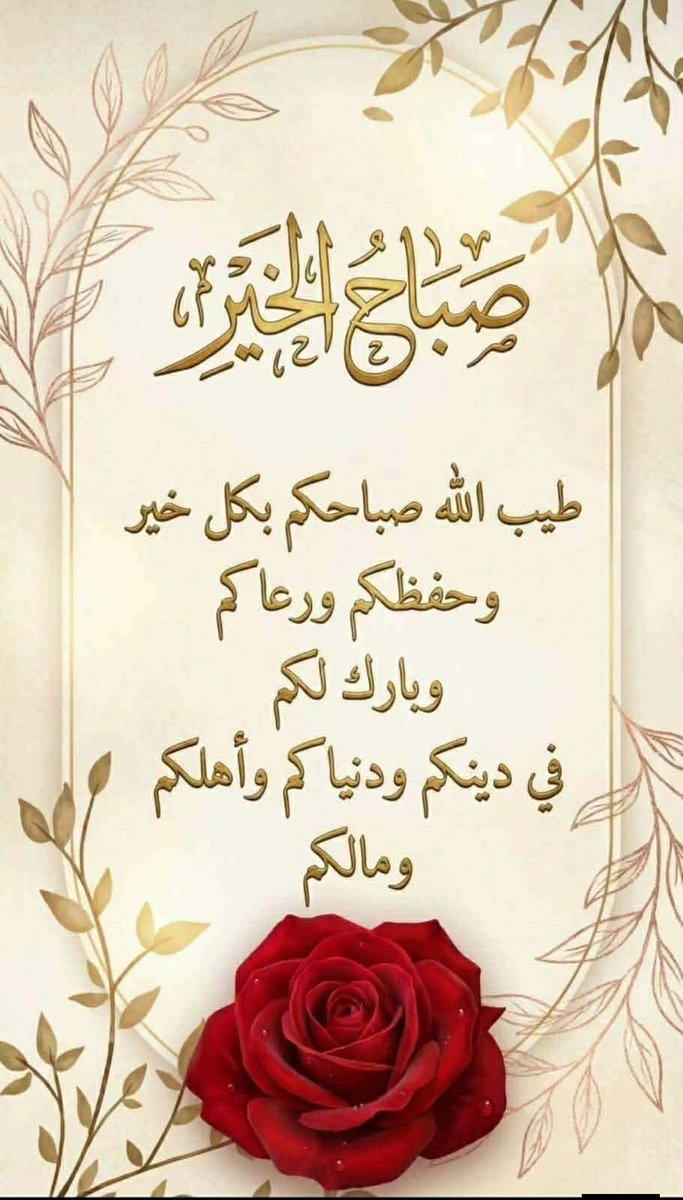 صَبَاحُ الخَيْرِ
طيب الله صباحكم بكل خير
وحفظكم ورعاكم
وبارك لكم
في دينكم ودنياكم وأهلكم
ومالكم